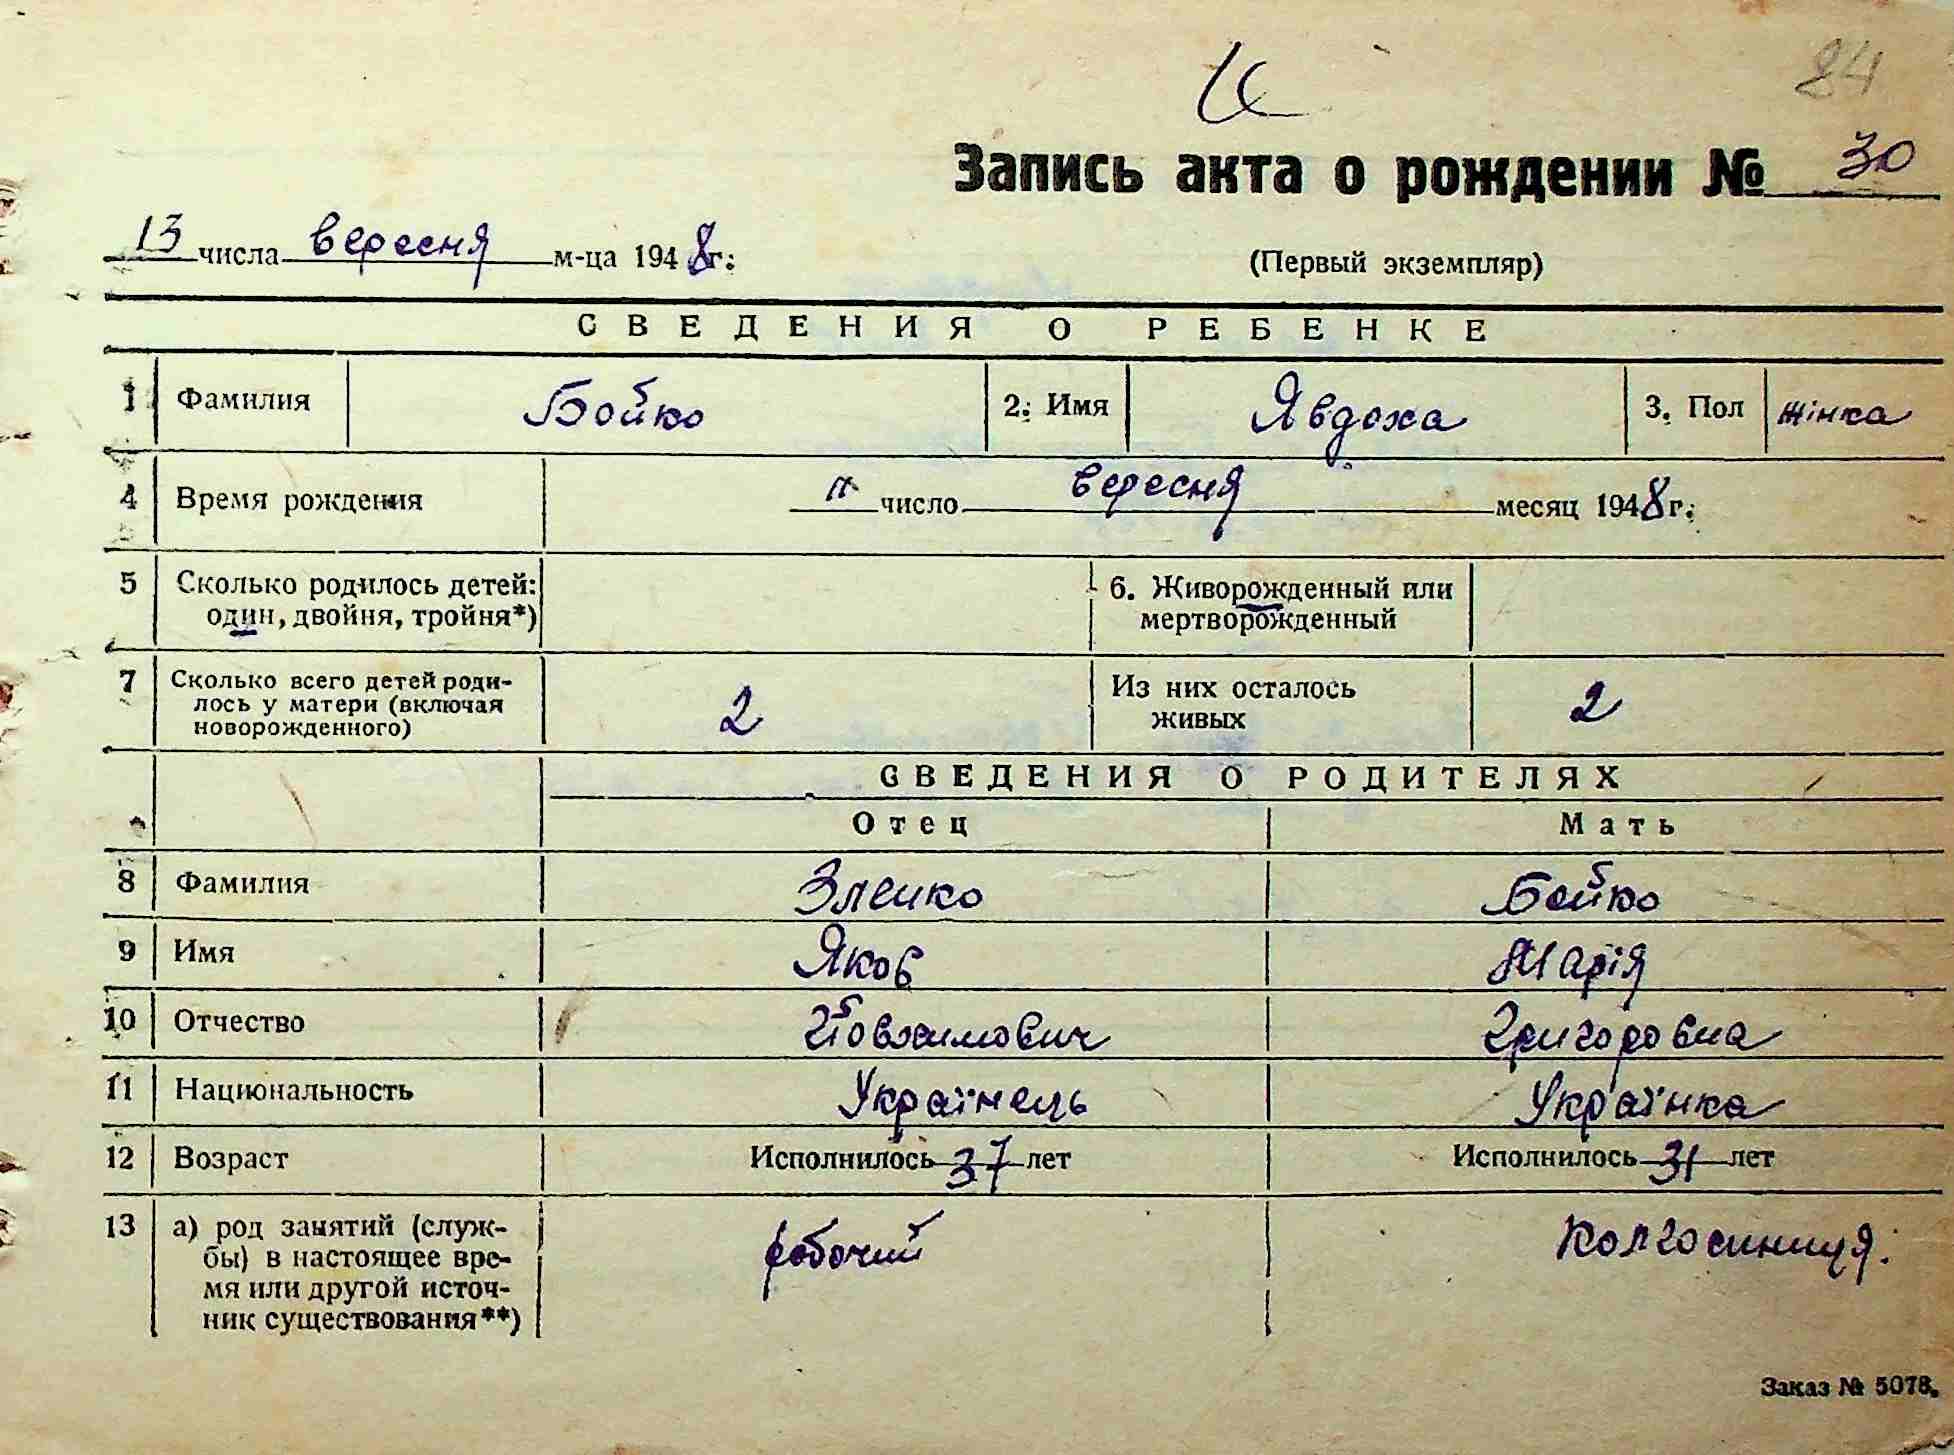 24
Запись акта о рождении № 30
13 числа вересня м-ца 1948 г.
(Первый экземпляр)
СВЕДЕНИЯ О РЕБЕНКЕ
1 Фамилия Бойко 2. Имя Явдоха 3. Пол жінка
4 Время рождения 11 число вересня месяц 1948 г.
5 Сколько родилось детей: 6. Живорожденный или
один, двойня, тройня*) мертворожденный
7 Сколько всего детей роди- Из них осталось
лось у матери (включая 2 живых 2
новорожденного)
СВЕДЕНИЯ О РОДИТЕЛЯХ
Отец Мать
8 Фамилия Зленко Бойко
9 Имя Яков Марія
10 Отчество Йовхимович Григоровна
11 Национальность Українець Українка
12 Возраст Исполнилось 37 лет Исполнилось 31 лет
13 а) род занятий (служ- робочий Колгоспниця.
бы) в настоящее вре-
мя или другой источ-
ник существования**)
Заказ № 5078.